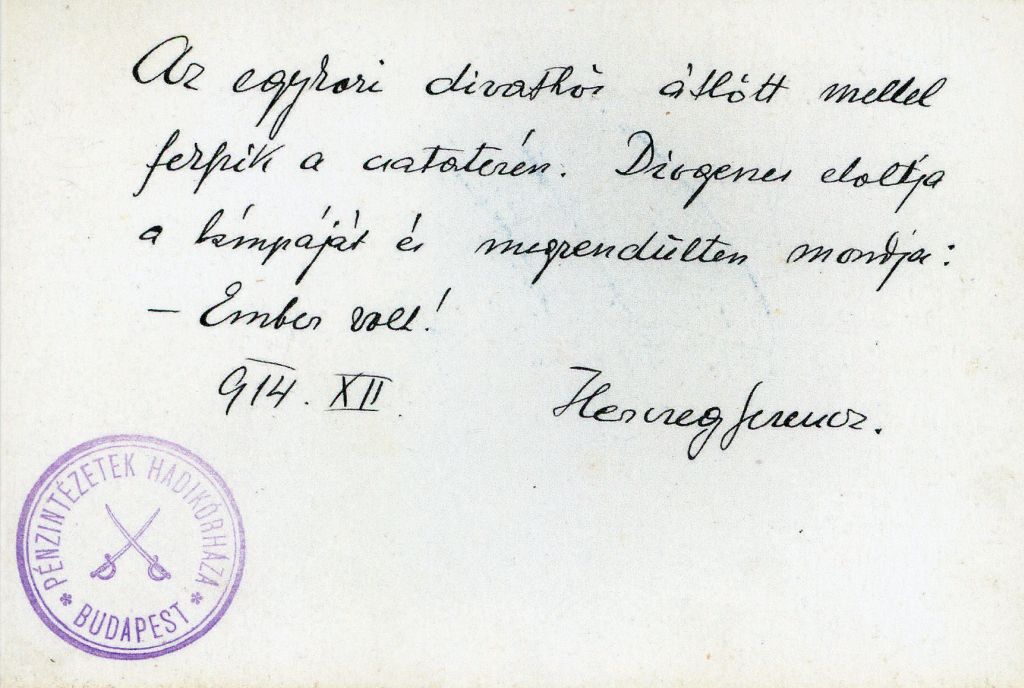 Az egykori divathős átlőtt mellel
fekszik a csatatéren. Diogenes eloltja
a lámpáját és megrendülten mondja:
– Ember volt!
914. XII.
Herczeg Ferencz.
PÉNZINTÉZETEK HADIKÓRHÁZA
* BUDAPEST *